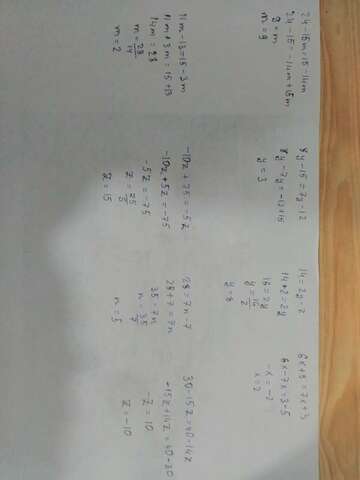 24-15m=15-14m
24-15=-14m+15m
9=m
m=9
8y-15=7y-12
8y-7y=-12+15
y=3
14=2y-2
14+2=2y
16=2y
y=16/2
y=8
6x+5=7x+3
6x-7x=3-5
-x=-2
x=2
11m-13=15-3m
11m+3m=15+13
14m=28
m=28/14
m=2
-10z+75=-5z
-10z+5z=-75
-5z=-75
z=75/5
z=15
28=7n-7
28+7=7n
35=7n
n=35/7
n=5
30-15z=40-14z
-15z+14z=40-30
-z=10
z=-10